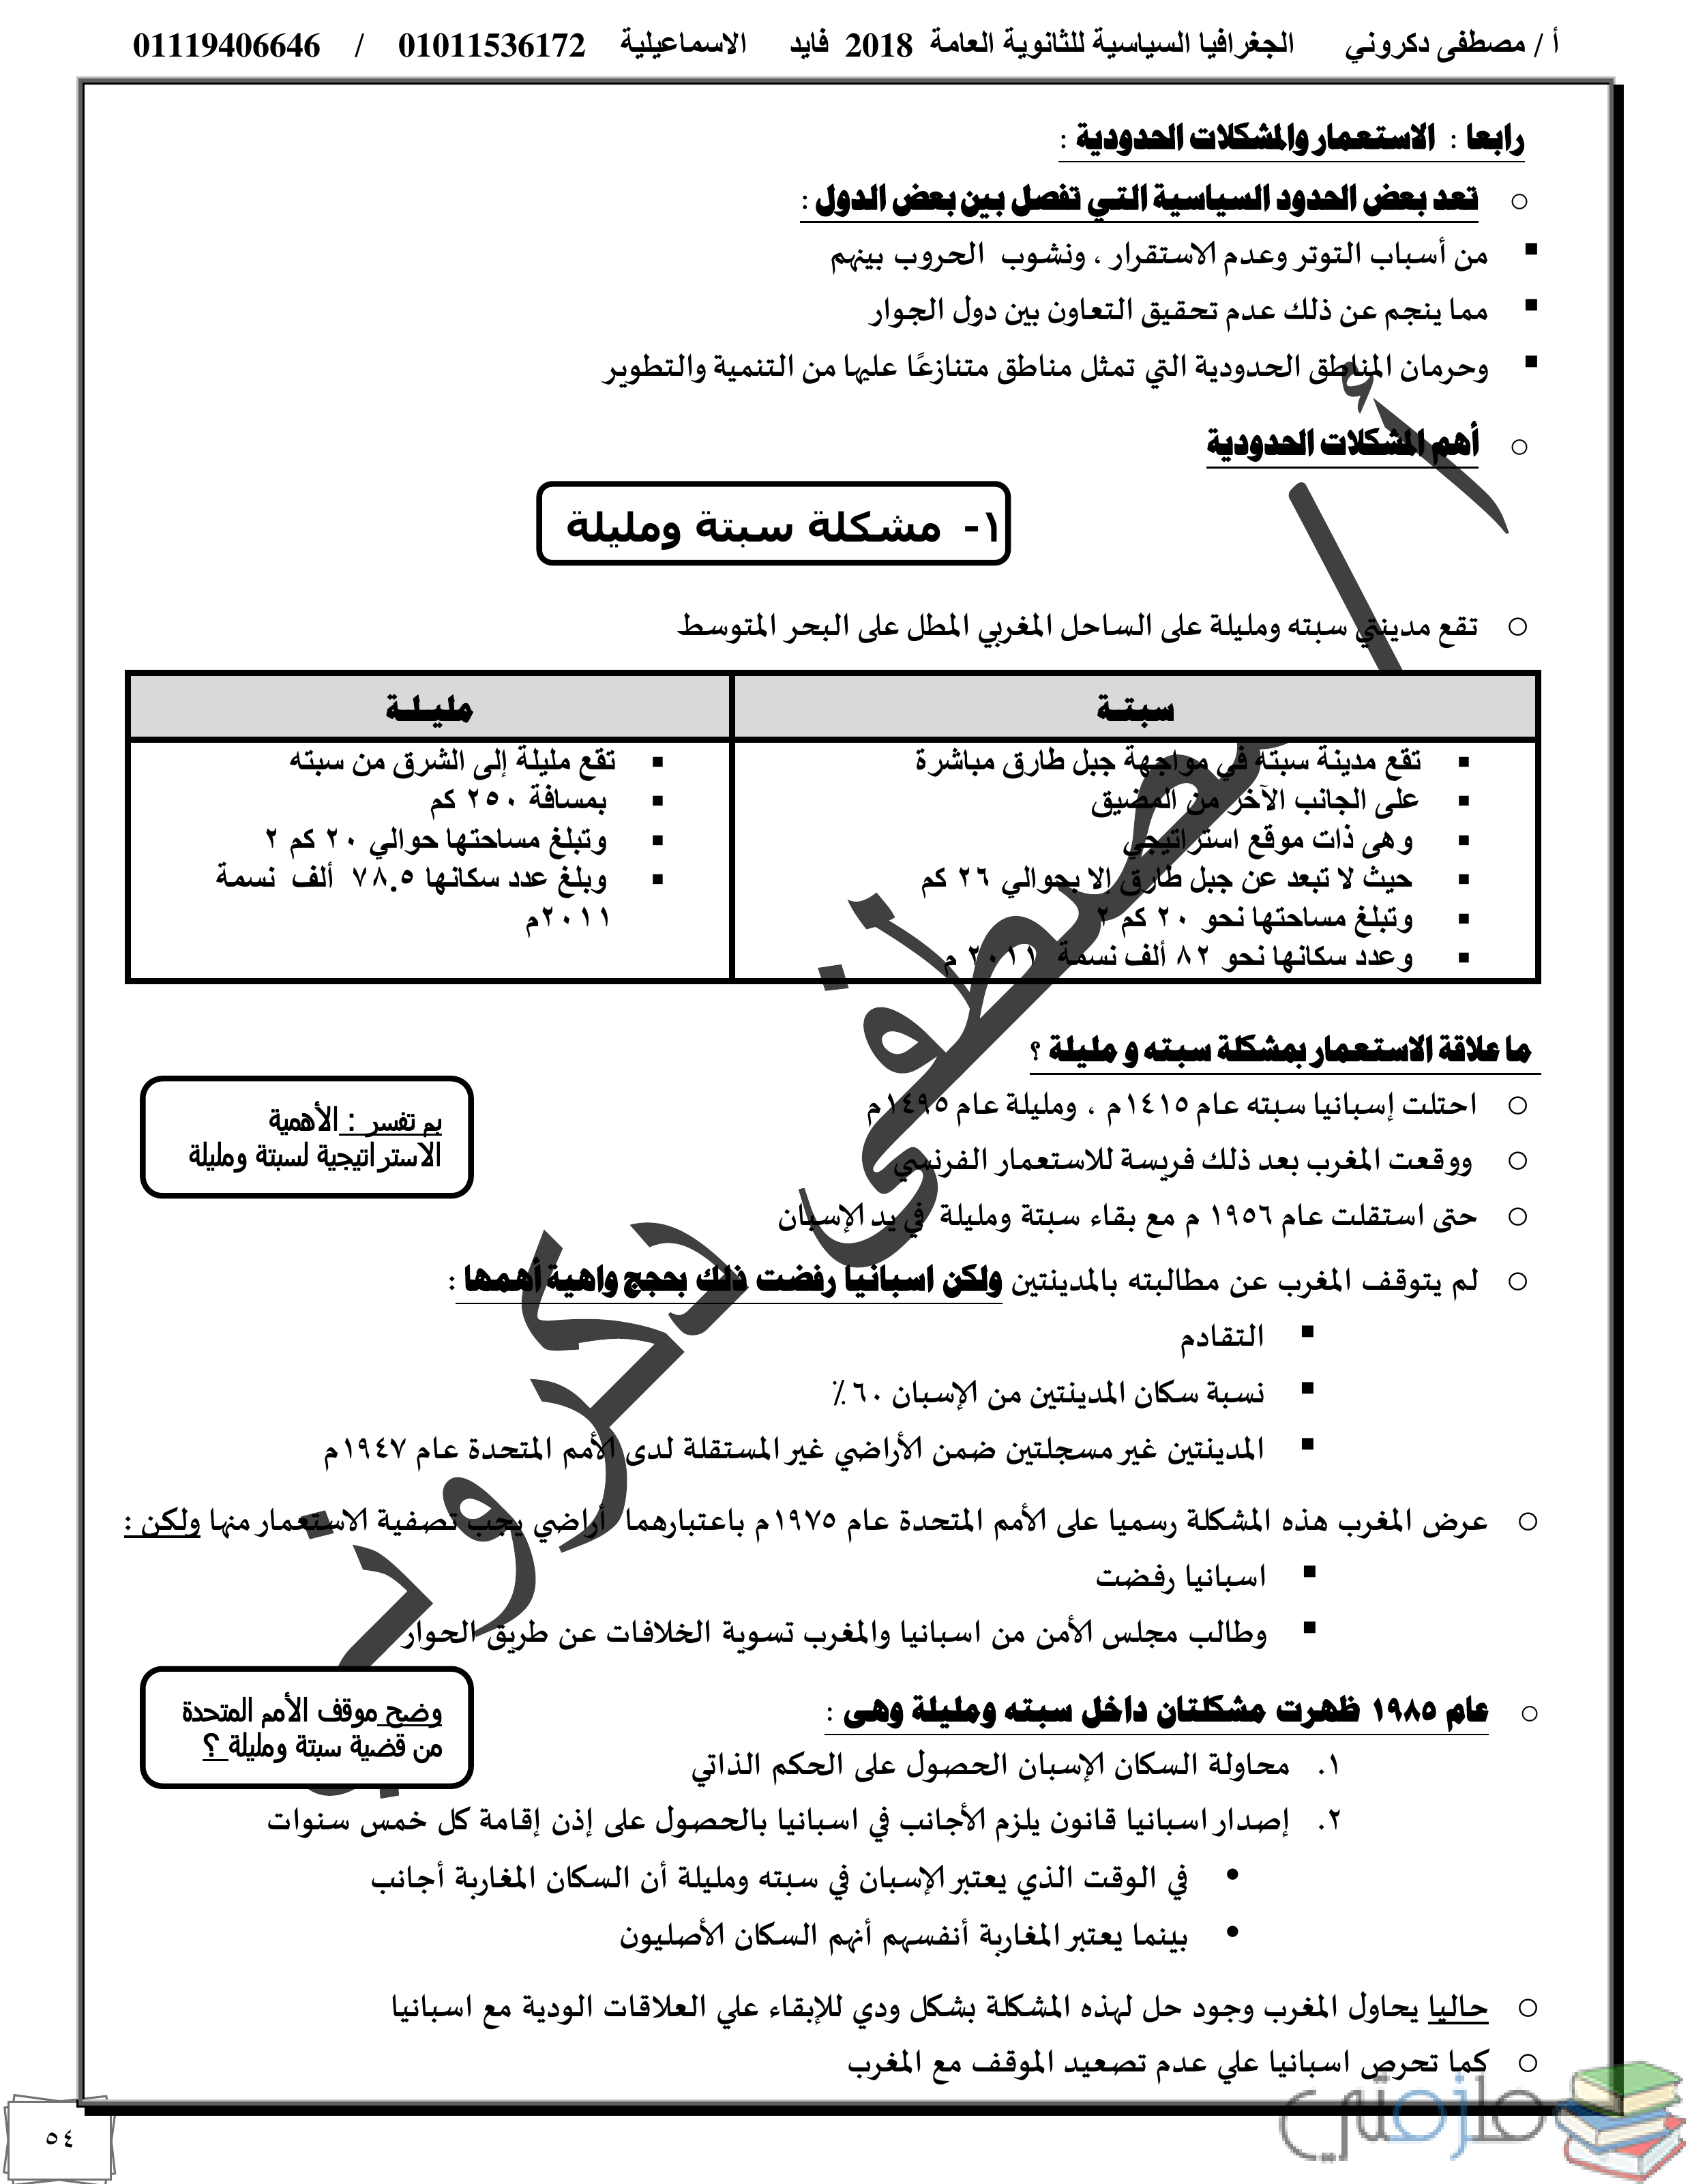 أ / مصطفى دكروني الجغرافيا السياسية للثانوية العامة 2018 فايد الاسماعيلية 01011536172 / 01119406646
رابعا : الاستعمار والمشكلات الحدودية :
تعد بعض الحدود السياسية التي تفصل بين بعض الدول :
من أسباب التوتر وعدم الاستقرار ، ونشوب الحروب بينهم
مما ينجم عن ذلك عدم تحقيق التعاون بين دول الجوار
وحرمان المناطق الحدودية التي تمثل مناطق متنازعًا عليها من التنمية والتطوير
أهم المشكلات الحدودية
١- مشكلة سبتة ومليلة
تقع مدينتي سبته ومليلة على الساحل المغربي المطل على البحر المتوسط
سبتـة
تقع مدينة سبتة في مواجهة جبل طارق مباشرة
على الجانب الآخر من المضيق
وهى ذات موقع استراتيجي
حيث لا تبعد عن جبل طارق إلا بحوالي ٢٦ كم
وتبلغ مساحتها نحو ٢٠ كم ٢
وعدد سكانها نحو ٨٢ ألف نسمة ٢٠١١ م
مليـلـة
تقع مليلة إلى الشرق من سبته
بمسافة ٢٥٠ كم
وتبلغ مساحتها حوالي ٢٠ كم ٢
وبلغ عدد سكانها ٧٨.٥ ألف نسمة
٢٠١١م
ما علاقة الاستعمار بمشكلة سبته و مليلة ؟
احتلت إسبانيا سبته عام ١٤١٥م ، ومليلة عام ١٤٩٥م
ووقعت المغرب بعد ذلك فريسة للاستعمار الفرنسي
حتى استقلت عام ١٩٥٦ م مع بقاء سبتة ومليلة في يد الإسبان
بم تفسر : الأهمية
الاستراتيجية لسبتة ومليلة
لم يتوقف المغرب عن مطالبته بالمدينتين ولكن اسبانيا رفضت ذلك بحجج واهية أهمها :
التقادم
نسبة سكان المدينتين من الإسبان ٦٠٪
المدينتين غير مسجلتين ضمن الأراضي غير المستقلة لدى الأمم المتحدة عام ١٩٤٧م
عرض المغرب هذه المشكلة رسميا على الأمم المتحدة عام ١٩٧٥م باعتبارهما أراضي يجب تصفية الاستعمار منها ولكن :
اسبانيا رفضت
وطالب مجلس الأمن من اسبانيا والمغرب تسوية الخلافات عن طريق الحوار
وضح موقف الأمم المتحدة
من قضية سبتة ومليلة ؟
عام ١٩٨٥ ظهرت مشكلتان داخل سبته ومليلة وهى :
١. محاولة السكان الإسبان الحصول على الحكم الذاتي
٢. إصدار اسبانيا قانون يلزم الأجانب في اسبانيا بالحصول على إذن إقامة كل خمس سنوات
في الوقت الذي يعتبر الإسبان في سبته ومليلة أن السكان المغاربة أجانب
بينما يعتبر المغاربة أنفسهم أنهم السكان الأصليون
حاليا يحاول المغرب وجود حل لهذه المشكلة بشكل ودي للإبقاء علي العلاقات الودية مع اسبانيا
كما تحرص اسبانيا علي عدم تصعيد الموقف مع المغرب
أ / مصطفى دكروني
ملزمتي
٥٤